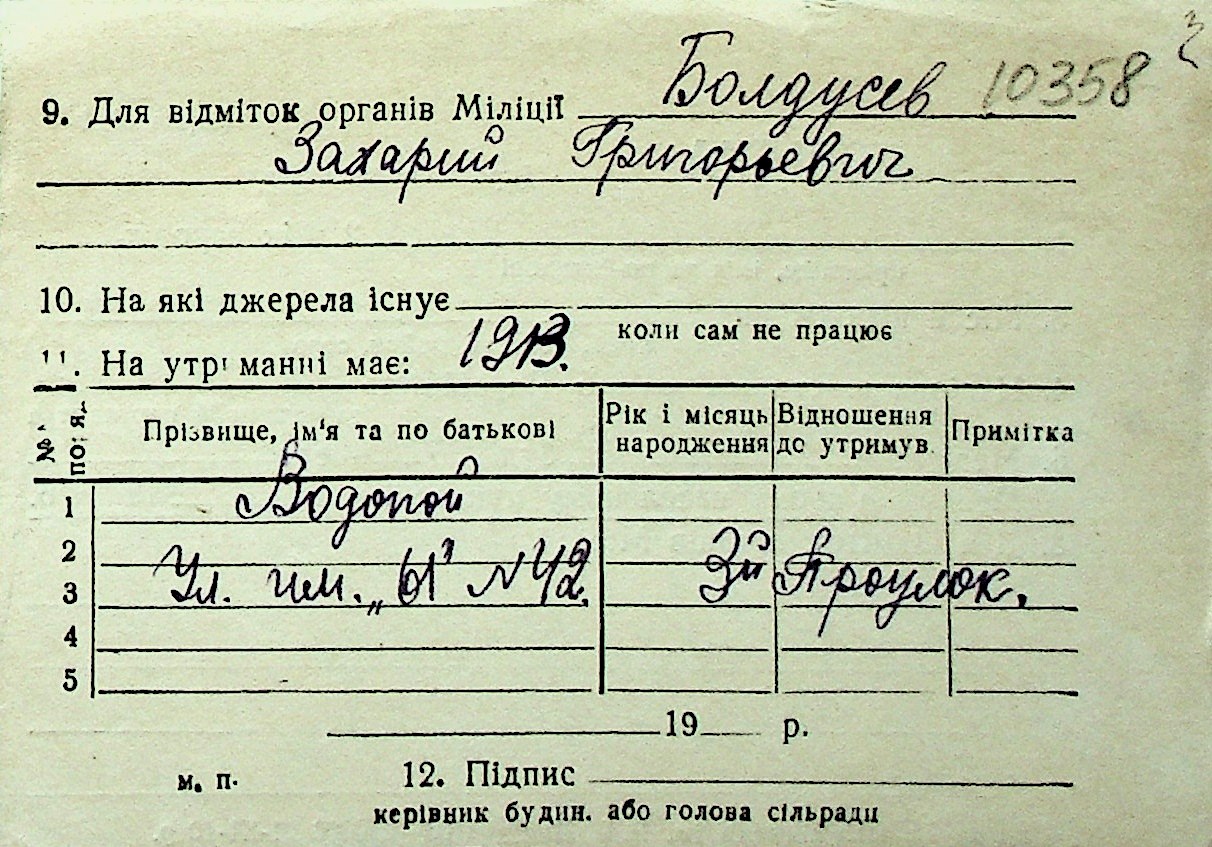 9. Для відміток органів Міліції Болдусев 10358
Захарий Григорьевич
10. На які джерела існує
коли сам не працює
11. На утриманні має: 1913.
№ по п.
Прізвище, ім'я та по батькові
Рік і місяць народження
Відношення до утримув.
Примітка
1 Водопой
2
3 Ул. им. „61" № 42. 3й Проулок.
4
5
19 р.
м. п. 12. Підпис
керівник будин. або голова сільради